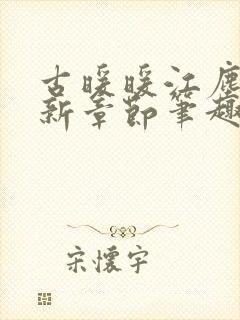 古暖暖江塵
新章節筆趣
宋懷宇